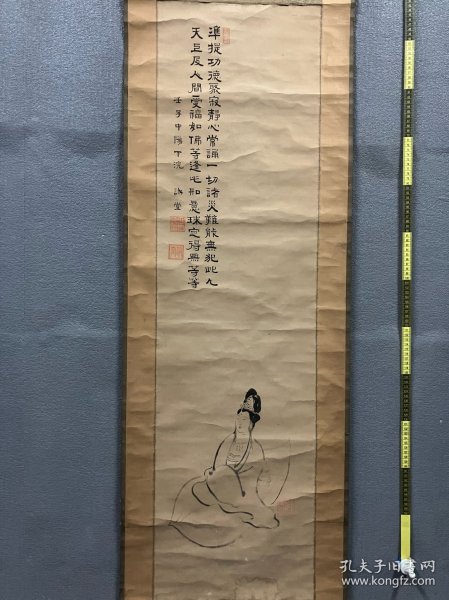 準提功德聚寂靜心常誦一切諸大難能無犯此人
天上及人間受福如佛等遇此如意珠定得無等等
壬子中陽下浣
孔夫子旧书网
www.kongfz.com